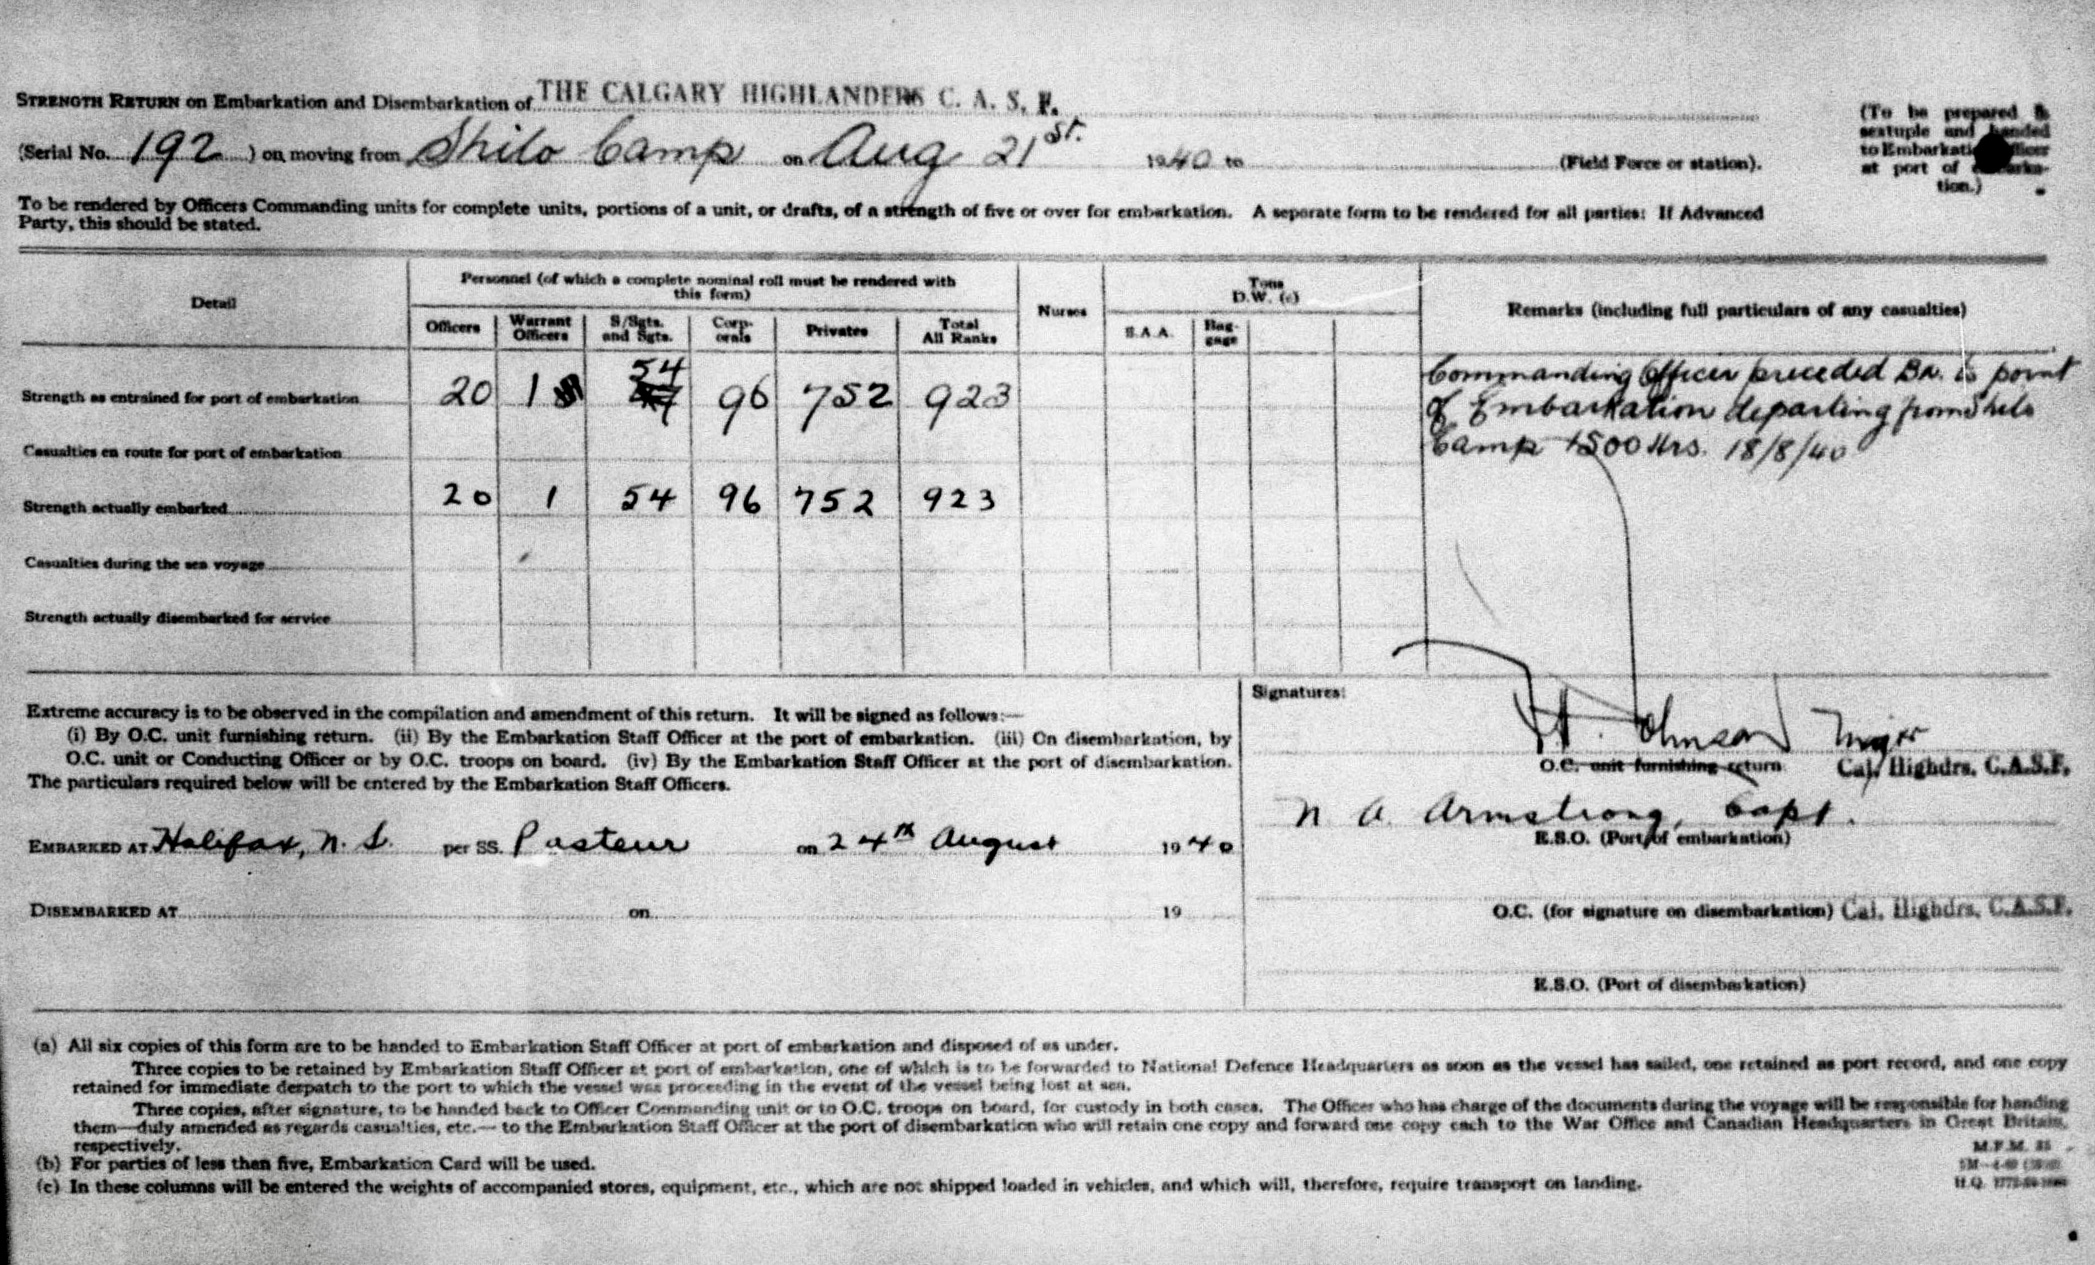 STRENGTH RETURN on Embarkation and Disembarkation of THE CALGARY HIGHLANDERS C. A. S. F.
(Serial No. 192 ) on moving from Shilo Camp on Aug 21st. 1940 to (Field Force or station).
(To be prepared
sextuple and handed
to Embarkation Officer
at port of embarka-
tion.)
To be rendered by Officers Commanding units for complete units, portions of a unit, or drafts, of a strength of five or over for embarkation. A separate form to be rendered for all parties: If Advanced
Party, this should be stated.
Detail
Personnel (of which a complete nominal roll must be rendered with
this form)
Officers
Warrant
Officers
S/Sgts.
and Sgts.
Corp-
orals
Privates
Total
All Ranks
Nurses
Tons
D.W. (c)
S.A.A.
Bag-
gage
Remarks (including full particulars of any casualties)
Strength as entrained for port of embarkation 20 1 54 96 752 923
Commanding Officer preceded Bn. to point
of Embarkation departing from Shilo
Camp 1500 Hrs. 18/8/40
Casualties en route for port of embarkation
Strength actually embarked 20 1 54 96 752 923
Casualties during the sea voyage
Strength actually disembarked for service
Extreme accuracy is to be observed in the compilation and amendment of this return. It will be signed as follows:—
(i) By O.C. unit furnishing return. (ii) By the Embarkation Staff Officer at the port of embarkation. (iii) On disembarkation, by
O.C. unit or Conducting Officer or by O.C. troops on board. (iv) By the Embarkation Staff Officer at the port of disembarkation.
The particulars required below will be entered by the Embarkation Staff Officers.
EMBARKED AT Halifax, N. S. per SS. Pasteur on 24th August 1940
DISEMBARKED AT on 19
Signatures:
Johnson Major
O.C. unit furnishing return Cal. Highdrs. C.A.S.F.
N A Armstrong, Capt.
E.S.O. (Port of embarkation)
O.C. (for signature on disembarkation) Cal. Highdrs. C.A.S.F.
E.S.O. (Port of disembarkation)
(a) All six copies of this form are to be handed to Embarkation Staff Officer at port of embarkation and disposed of as under.
Three copies to be retained by Embarkation Staff Officer at port of embarkation, one of which is to be forwarded to National Defence Headquarters as soon as the vessel has sailed, one retained as port record, and one copy
retained for immediate despatch to the port to which the vessel was proceeding in the event of the vessel being lost at sea.
Three copies, after signature, to be handed back to Officer Commanding unit or to O.C. troops on board, for custody in both cases. The Officer who has charge of the documents during the voyage will be responsible for handing
them—duly amended as regards casualties, etc.— to the Embarkation Staff Officer at the port of disembarkation who will retain one copy and forward one copy each to the War Office and Canadian Headquarters in Great Britain,
respectively.
(b) For parties of less than five, Embarkation Card will be used.
(c) In these columns will be entered the weights of accompanied stores, equipment, etc., which are not shipped loaded in vehicles, and which will, therefore, require transport on landing.
M.F.M.
H.Q.